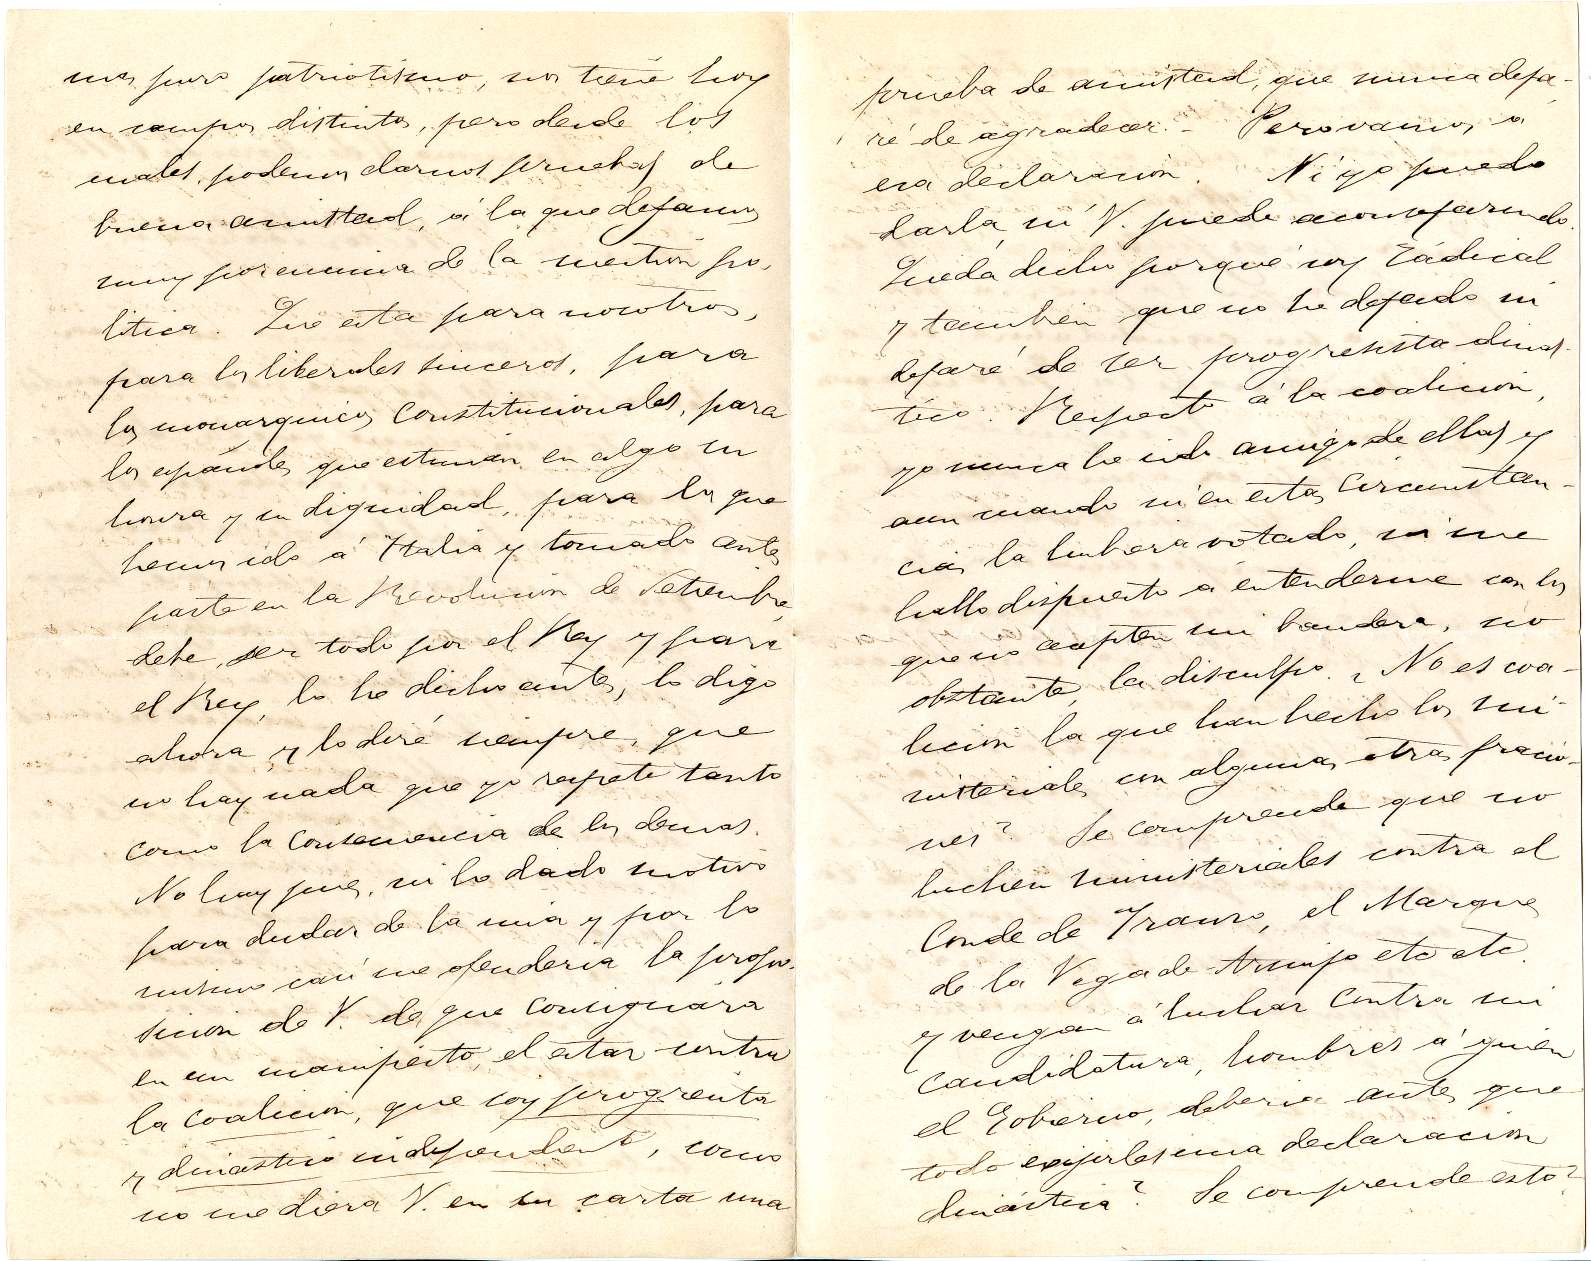 mas puro patriotismo, nos tiene hoy
en campos distintos, pero desde los
cuales, podemos darnos pruebas de
buena amistad, á la que dejamos
muy por encima de la cuestion po-
litica. Que esta para nosotros,
para los liberales sinceros, para
los monarquicos constitucionales, para
los españoles que estiman en algo su
honra y su dignidad, para los que
hemos ido á Italia y tomado antes
parte en la Revolucion de Setiembre
debe, ser todo por el Rey y para
el Rey, lo he dicho antes, lo digo
ahora y lo diré siempre, que
no hay nada que yo respete tanto
como la consecuencia de los demas.
No hay pues, ni he dado motivo
para dudar de la mia y por lo
mismo casi me ofenderia la propo-
sicion de V. de que consignára
en un manifiesto, el estar contra
la coalicion, que soy progresista
y dinastico independiente, como
no me diera V. en su carta una
prueba de amistad, que nunca deja-
ré de agradecer. - Pero vamos á
esa declaracion. Ni yo puedo
darla, ni V. puede aconsejarmelo.
Queda dicho porqué soy radical
y tambien que no he dejado ni
dejaré de ser progresista dinas-
tico. Respecto á la coalicion,
yo nunca he sido amigo de ellas y
aun cuando ni en estas circunstan-
cias la hubiera votado, ni me
hallo dispuesto á entenderme con los
que no acepten mi bandera, no
obstante, la disculpo. ¿No es coa-
licion la que han hecho los mi-
nisteriales con algunas otras fraccio-
nes? Se comprende que no
luchen ministeriales contra el
Conde de Iranzo, el Marques
de la Vega de Armijo etc etc.
y vengan á luchar contra mi
candidatura, hombres á quien
el Gobierno, deberia antes que
todo exijirles una declaracion
dinástica? Se comprende esto?